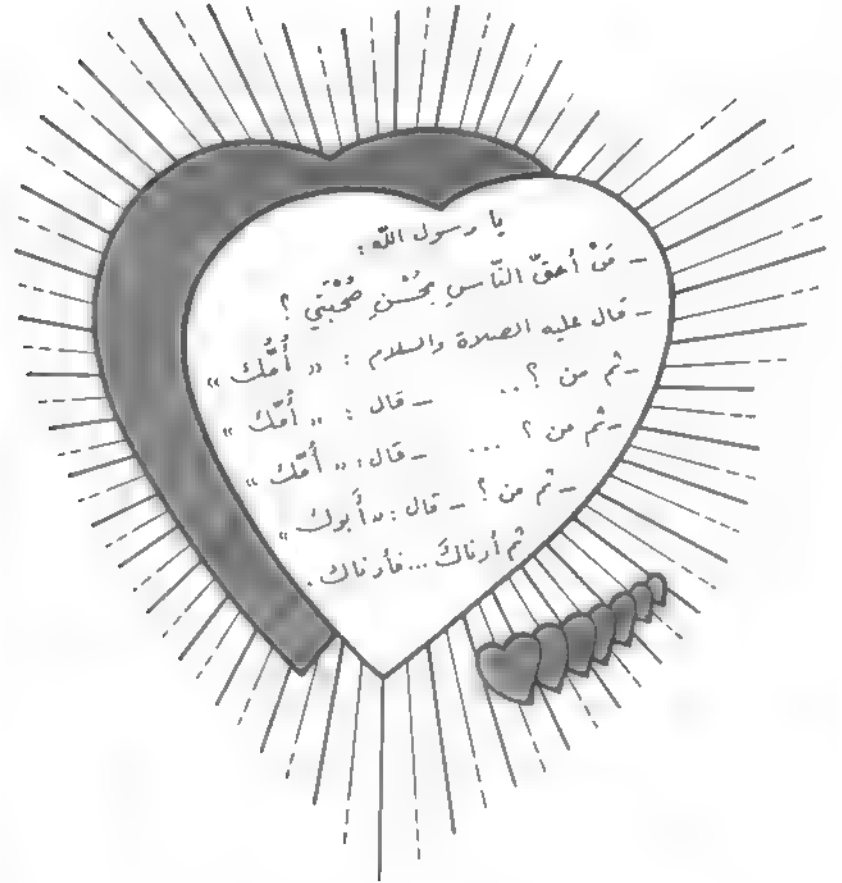 يا رسول الله :
- مَنْ أحقّ النّاسِ بحُسْنِ صُحْبَتِي ؟
- قال عليه الصلاة والسلام : « أُمُّكَ »
- ثم من ؟ .. - قال : « أُمّكَ »
- ثم من ؟ ... - قال : « أُمّكَ »
- ثم من ؟ - قال : « أَبوك »
ثم أدناكَ ... فأدناك .